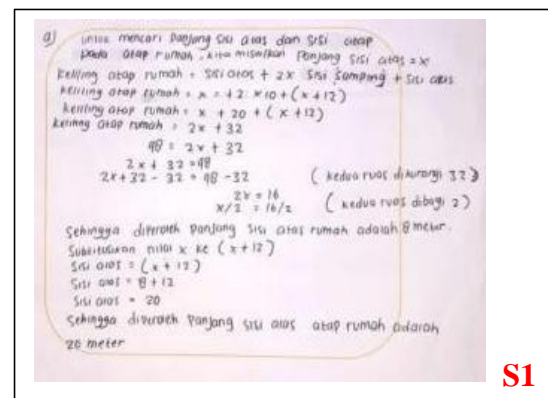 a) untuk mencari panjang sisi atas dan sisi
pada atap rumah, kita misalkan panjang sisi atas = x
Keliling atap rumah = sisi atas + 2x sisi samping + sisi alas
keliling atap rumah = x = +2 x 10 + (x + 12)
keliling atap rumah = x + 20 + (x + 12)
keliling atap rumah = 2x + 32
48 = 2x + 32
2x + 32 = 48
2x + 32 - 32 = 48 - 32 (kedua ruas dikurangi 32)
2x = 16
x/2 = 16/2 (kedua ruas dibagi 2)
Sehingga diperoleh panjang sisi atas rumah adalah 8 meter.
Subsitusikan nilai x ke (x + 12)
Sisi alas = (x + 12)
Sisi alas = 8 + 12
Sisi alas = 20
Sehingga diperoleh panjang sisi alas atap rumah adalah
20 meter
S1